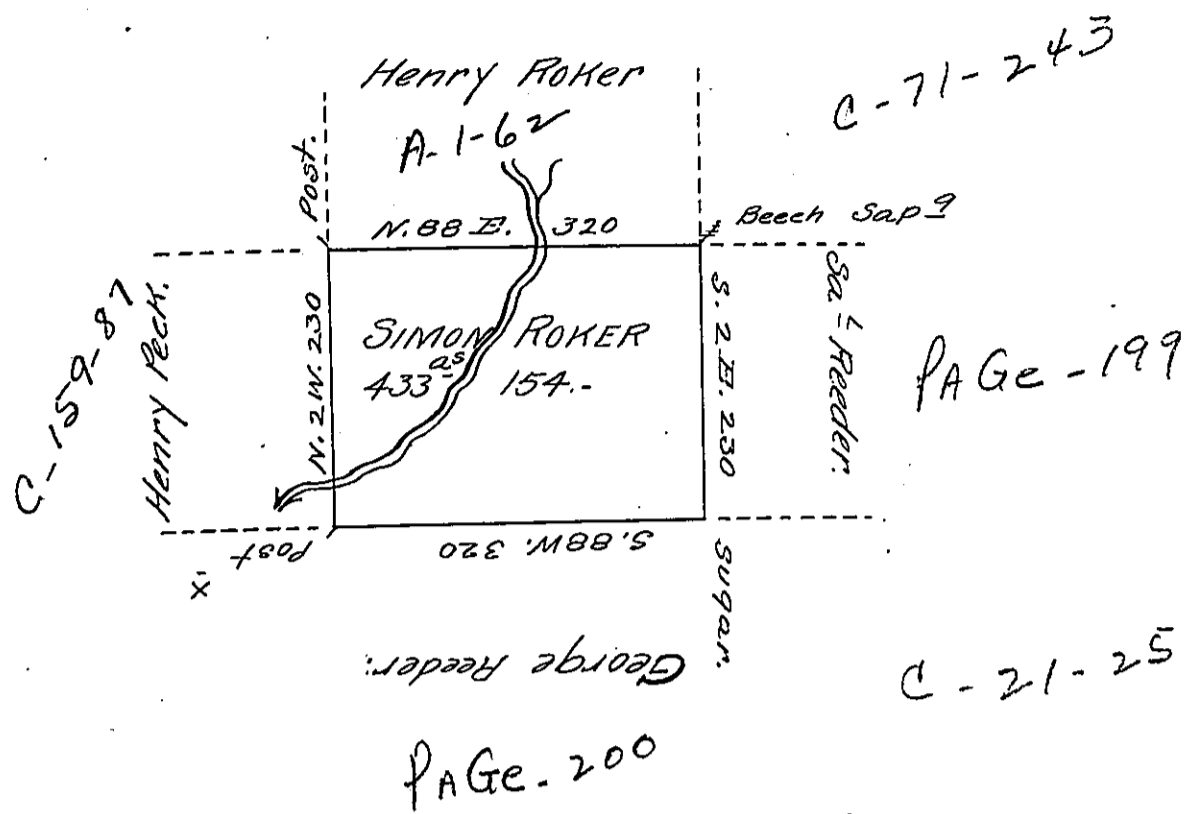 Henry Roker
A-1-62
C-71-243
Post.
N. 88 E. 320
Beech Sap g
C-159-87
Henry Peck.
N. 2 W. 230
SIMON ROKER
433 as 154.-
S. 2 E. 230
Sa L Reeder.
PAGe-199
Post
X
S. 88 W. 320
Sugar.
George Reeder:
C-21-25
PAGe-200